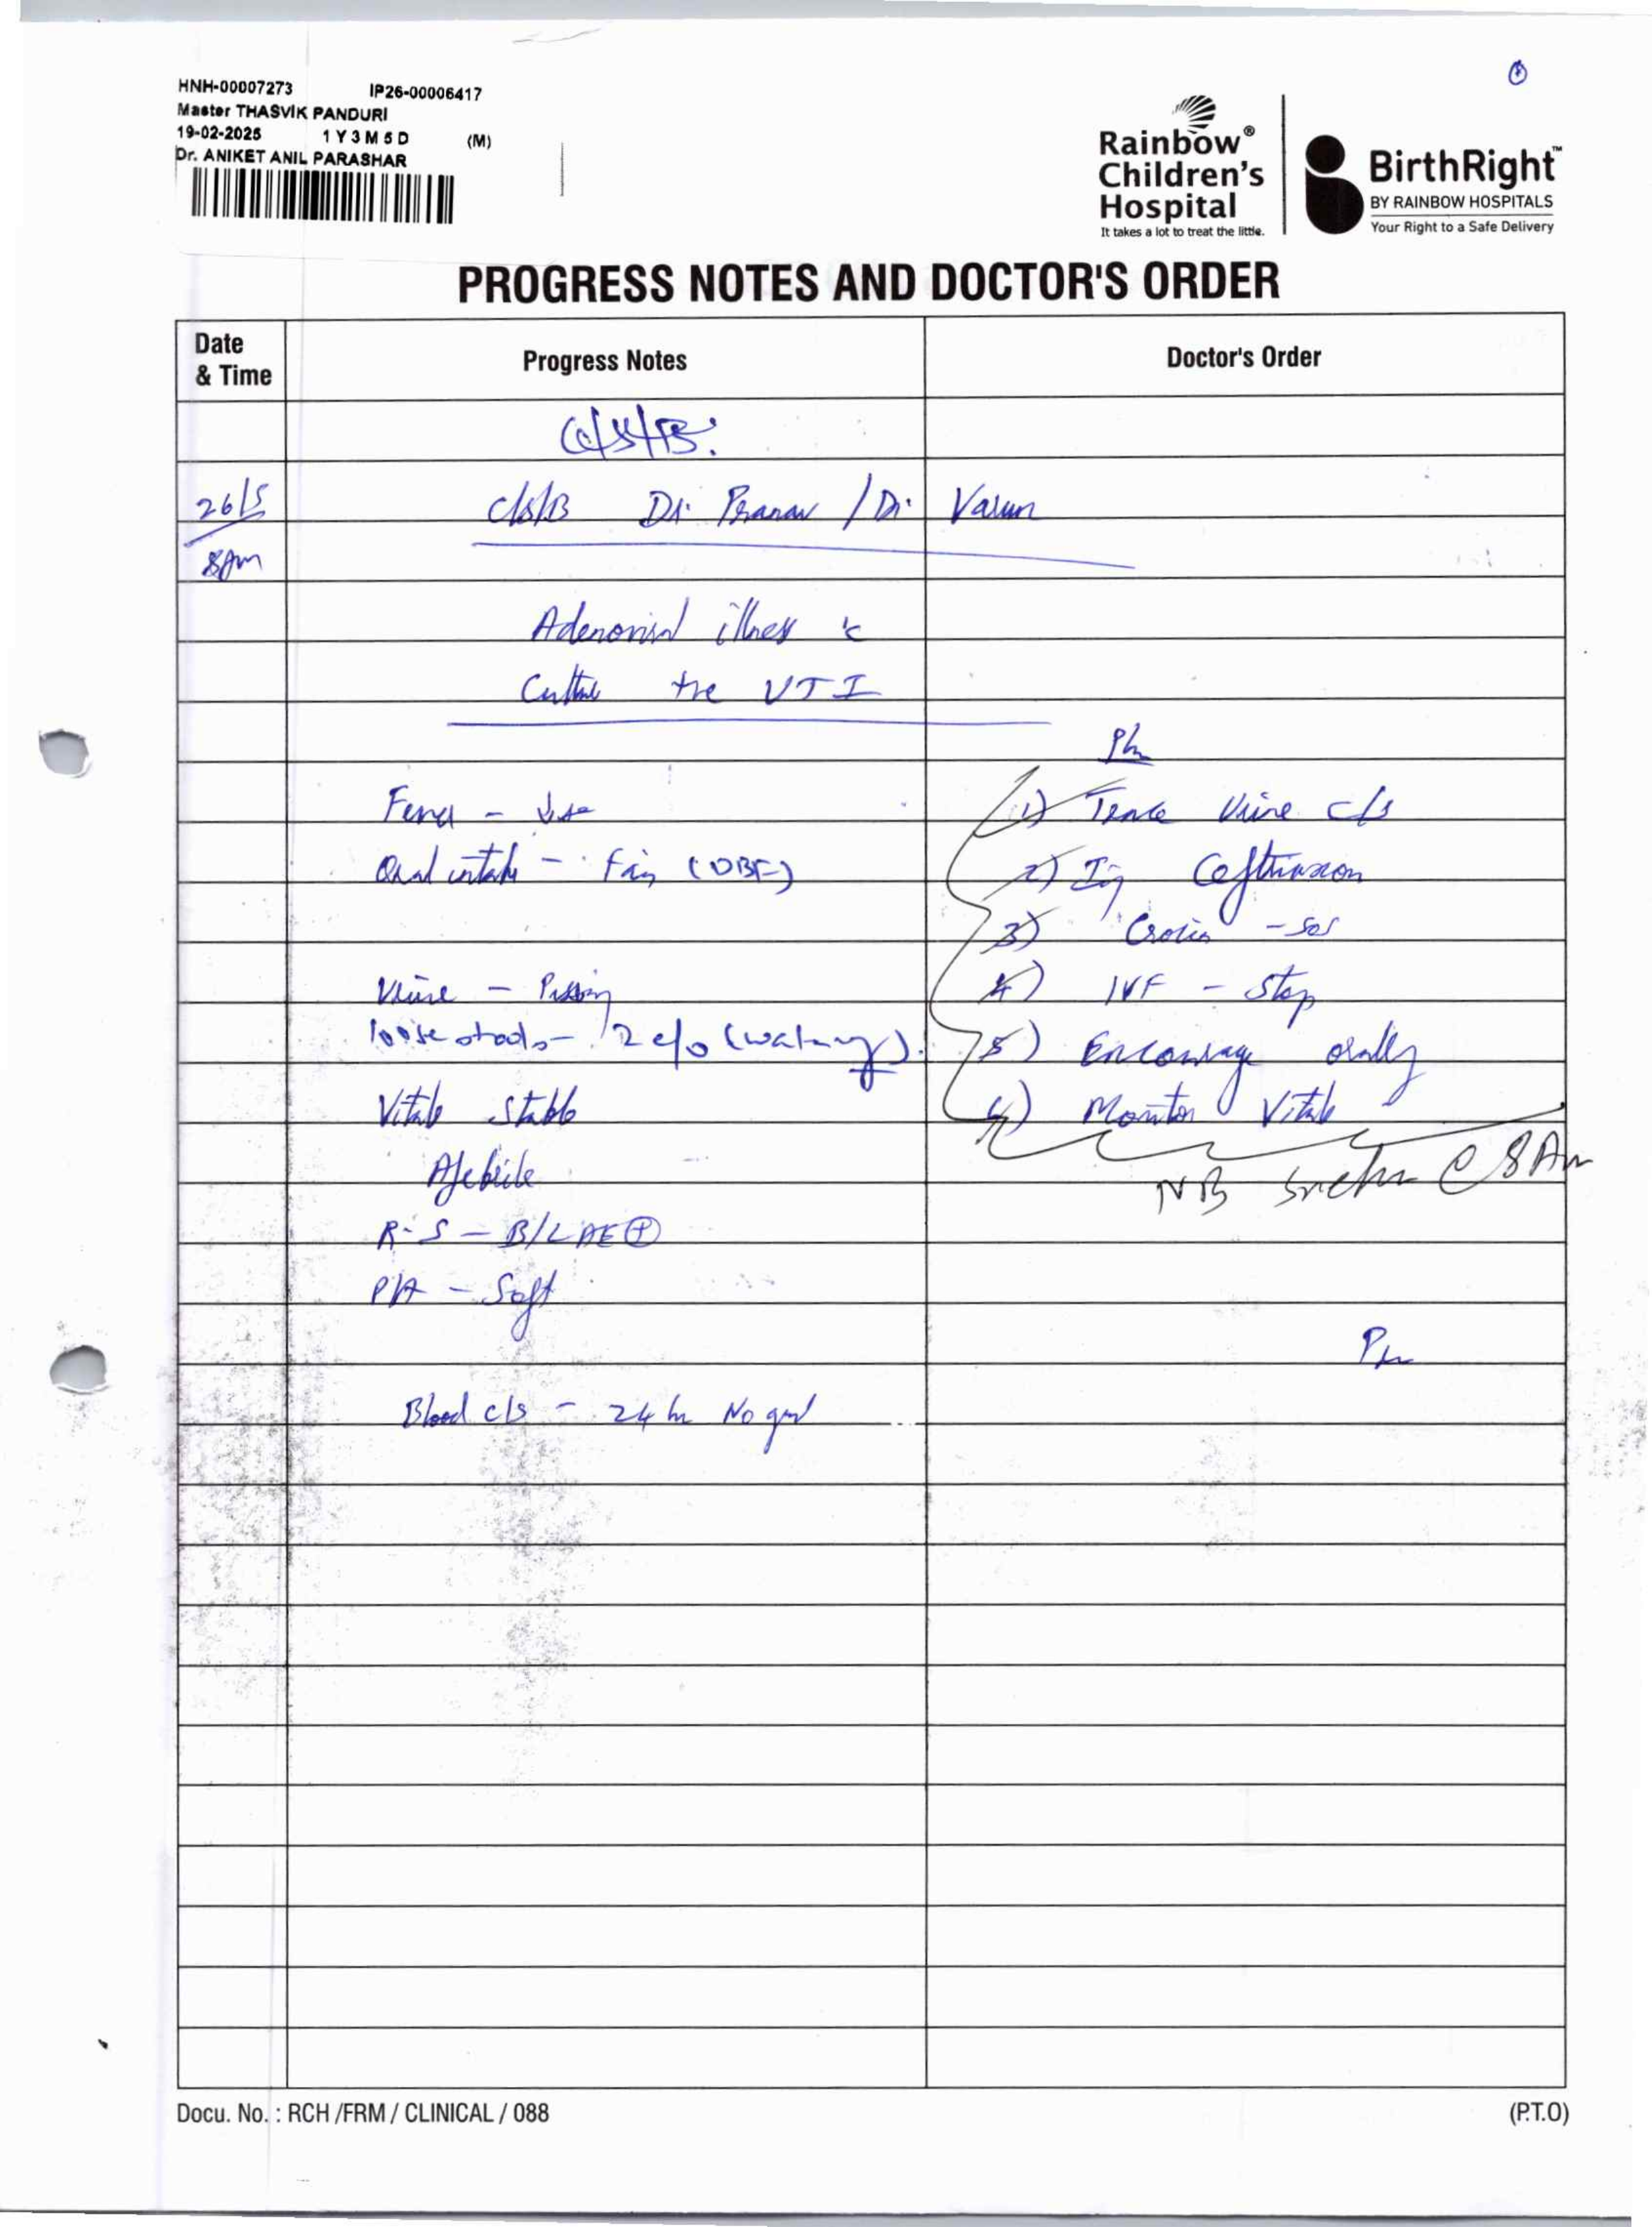 HNH-00007273 IP26-00006417
Master THASVIK PANDURI
19-02-2025 1Y3M5D (M)
Dr. ANIKET ANIL PARASHAR
Rainbow®
Children's
Hospital
It takes a lot to treat the little.
BirthRight™
BY RAINBOW HOSPITALS
Your Right to a Safe Delivery
PROGRESS NOTES AND DOCTOR'S ORDER
Date & Time Progress Notes Doctor's Order
26/5 c/s/B Dr. Pranav / Dr. Varun
8Am
Adenoviral illness c
Culture +ve UTI
Fever -
Oral intake - Fair (DBF) 1) Trace Urine c/s
2) Inj Ceftriaxon
3) Crocin - SOS
Urine - Passing 4) IVF - Stop
loose stools - 2 e/o (watery). 5) Encourage orally
Vitals Stable 6) Monitor Vitals
Afebrile NB Sneha @ 8Am
R.S - B/L AE ⊕
P/A - Soft
Blood c/s - 24 hr No
Docu. No. : RCH /FRM / CLINICAL / 088 (P.T.O)